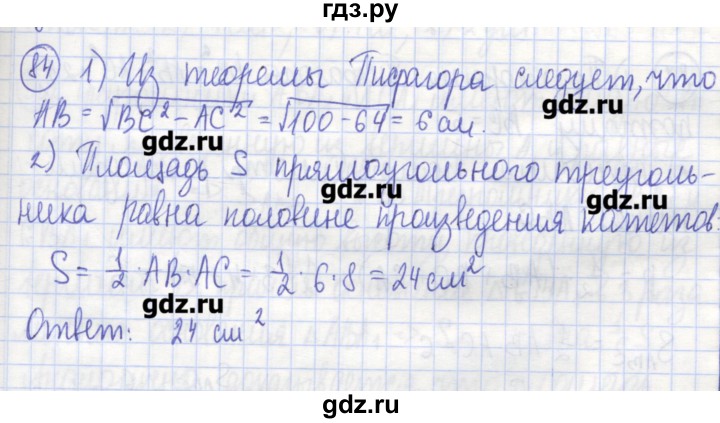 гдз.ру
84 1) Из теоремы Пифагора следует, что
AB = √BC² − AC² = √100 − 64 = 6 см.
gdz.ru
gdz.ru
2) Площадь S прямоугольного треуголь-
gdz.ru
gdz.ru
ника равна половине произведения катетов.
S = 1/2 · AB · AC = 1/2 · 6 · 8 = 24 см²
gdz.ru
gdz.ru
Ответ: 24 см²
gdz.ru